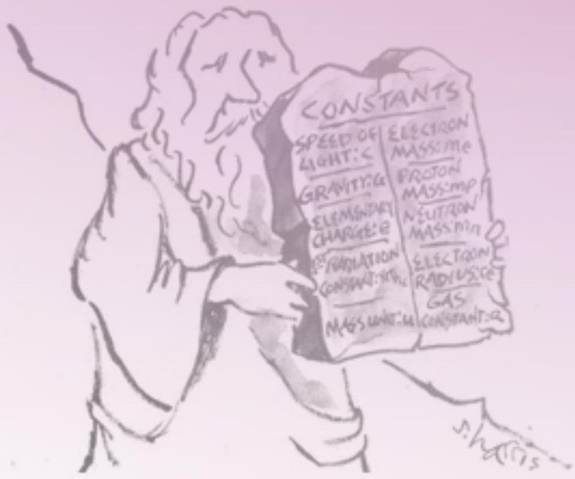 CONSTANTS
SPEED OF
LIGHT: c
GRAVITY: G
ELEMENTARY
CHARGE: e
1ST RADIATION
CONSTANT:
MASS UNIT: u
ELECTRON
MASS: me
PROTON
MASS: mp
NEUTRON
MASS: mn
ELECTRON
RADIUS: re
GAS
CONSTANT: R
S. harris